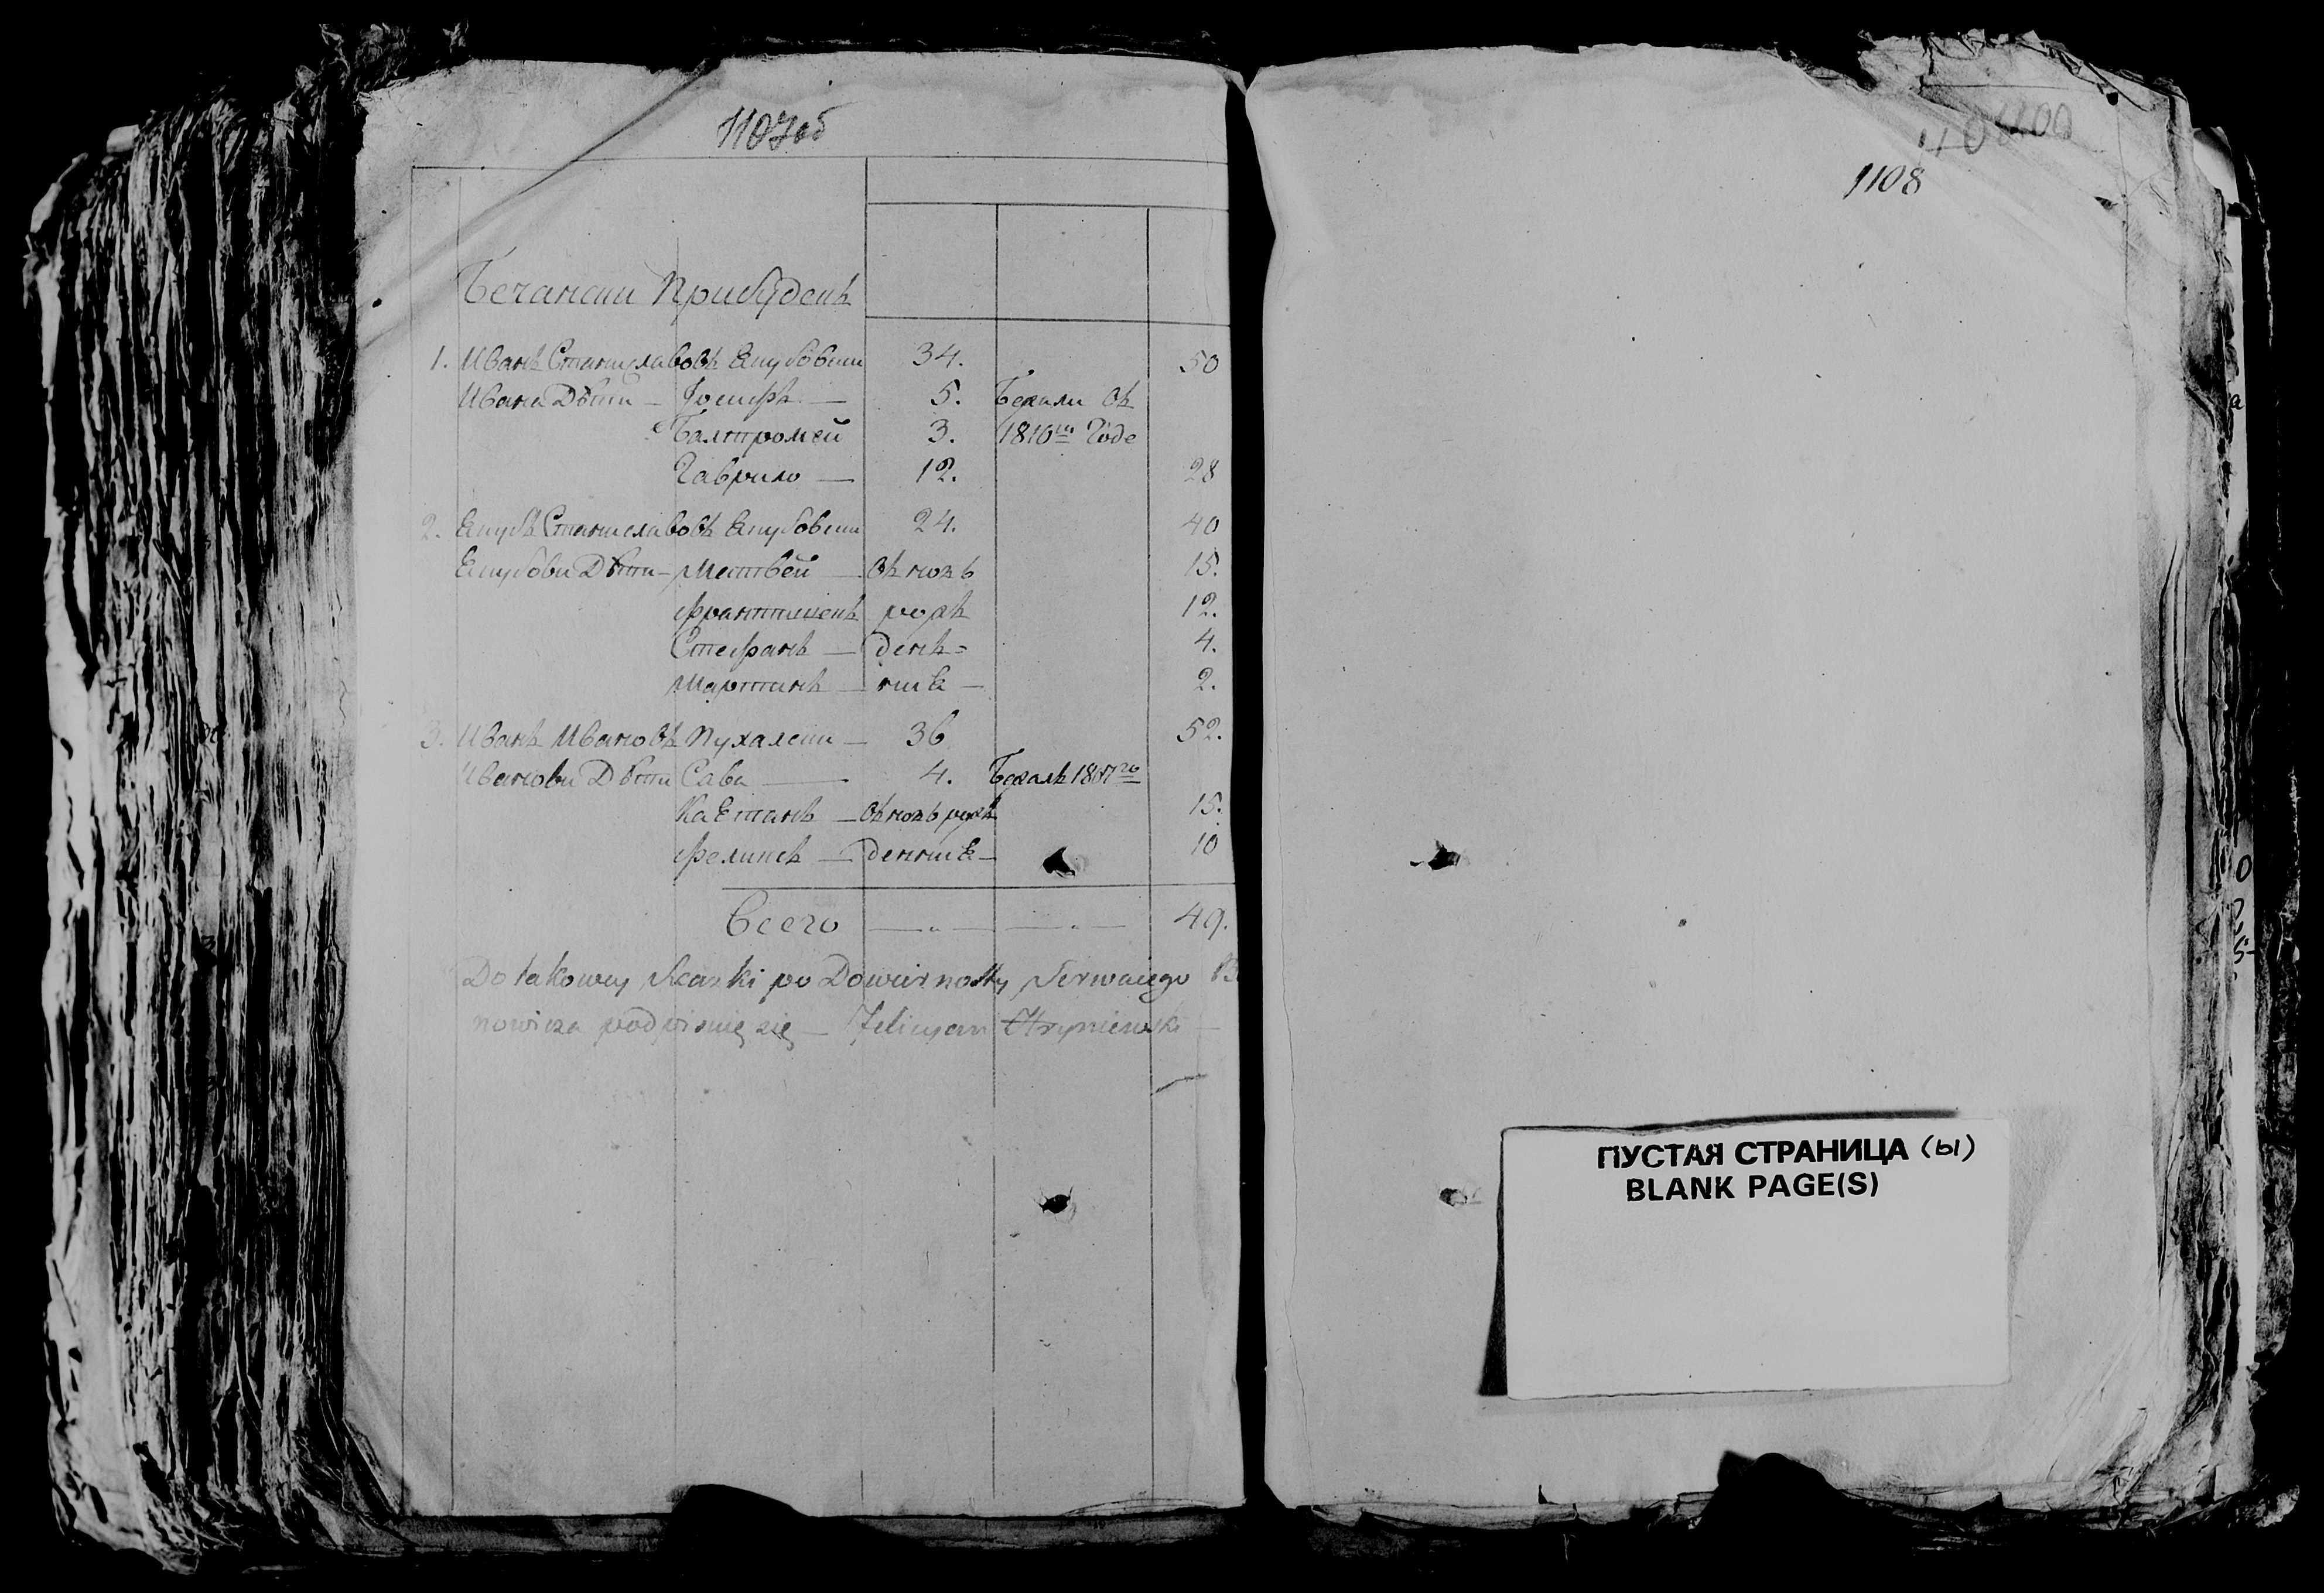 1107об
Бечански Прибуденъ
1. Иванъ Станиславовъ Екубовски 34. 50
Ивана Дѣти – Іосифъ — 5. Бежали въ
Балтромей 3. 1810го Годе
Гаврило — 12. 28
2. Екубъ Станиславовъ Екубовски 24. 40
Екубови Дѣти – Матвей — въ новь 15.
Франтишекъ рожъ 12.
Стефанъ — денъ= 4.
Мартинъ — ниE — 2.
3. Иванъ Ивановъ Пухалски — 36 52.
Иванови Дѣти Сава — 4. Бежалъ
КаEтанъ — въ новь рожъ 15.
Феликсъ — денниE — 10
Всего — „ — — „ — 49.
Do takowey Skazki po Dowiernosty
podpisuię się — Felicyan Hryniewski —
1108
ПУСТАЯ СТРАНИЦА (ы)
BLANK PAGE(S)